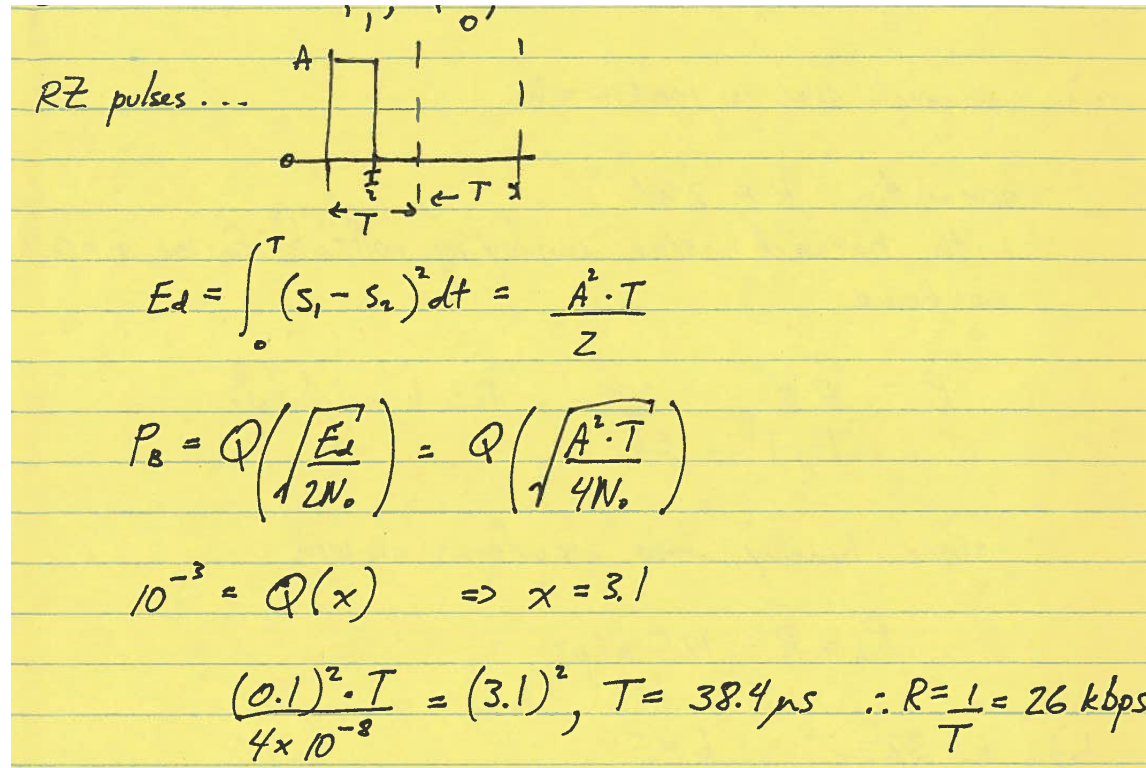 '1' '0'
A
RZ pulses...
0
T/2
T ← T
E_d = ∫_0^T (s_1 - s_2)^2 dt = A^2·T / 2
P_B = Q(√(E_d / 2N_0)) = Q(√(A^2·T / 4N_0))
10^-3 = Q(x) => x = 3.1
(0.1)^2·T / 4x10^-8 = (3.1)^2, T = 38.4 μs ∴ R = 1/T = 26 kbps